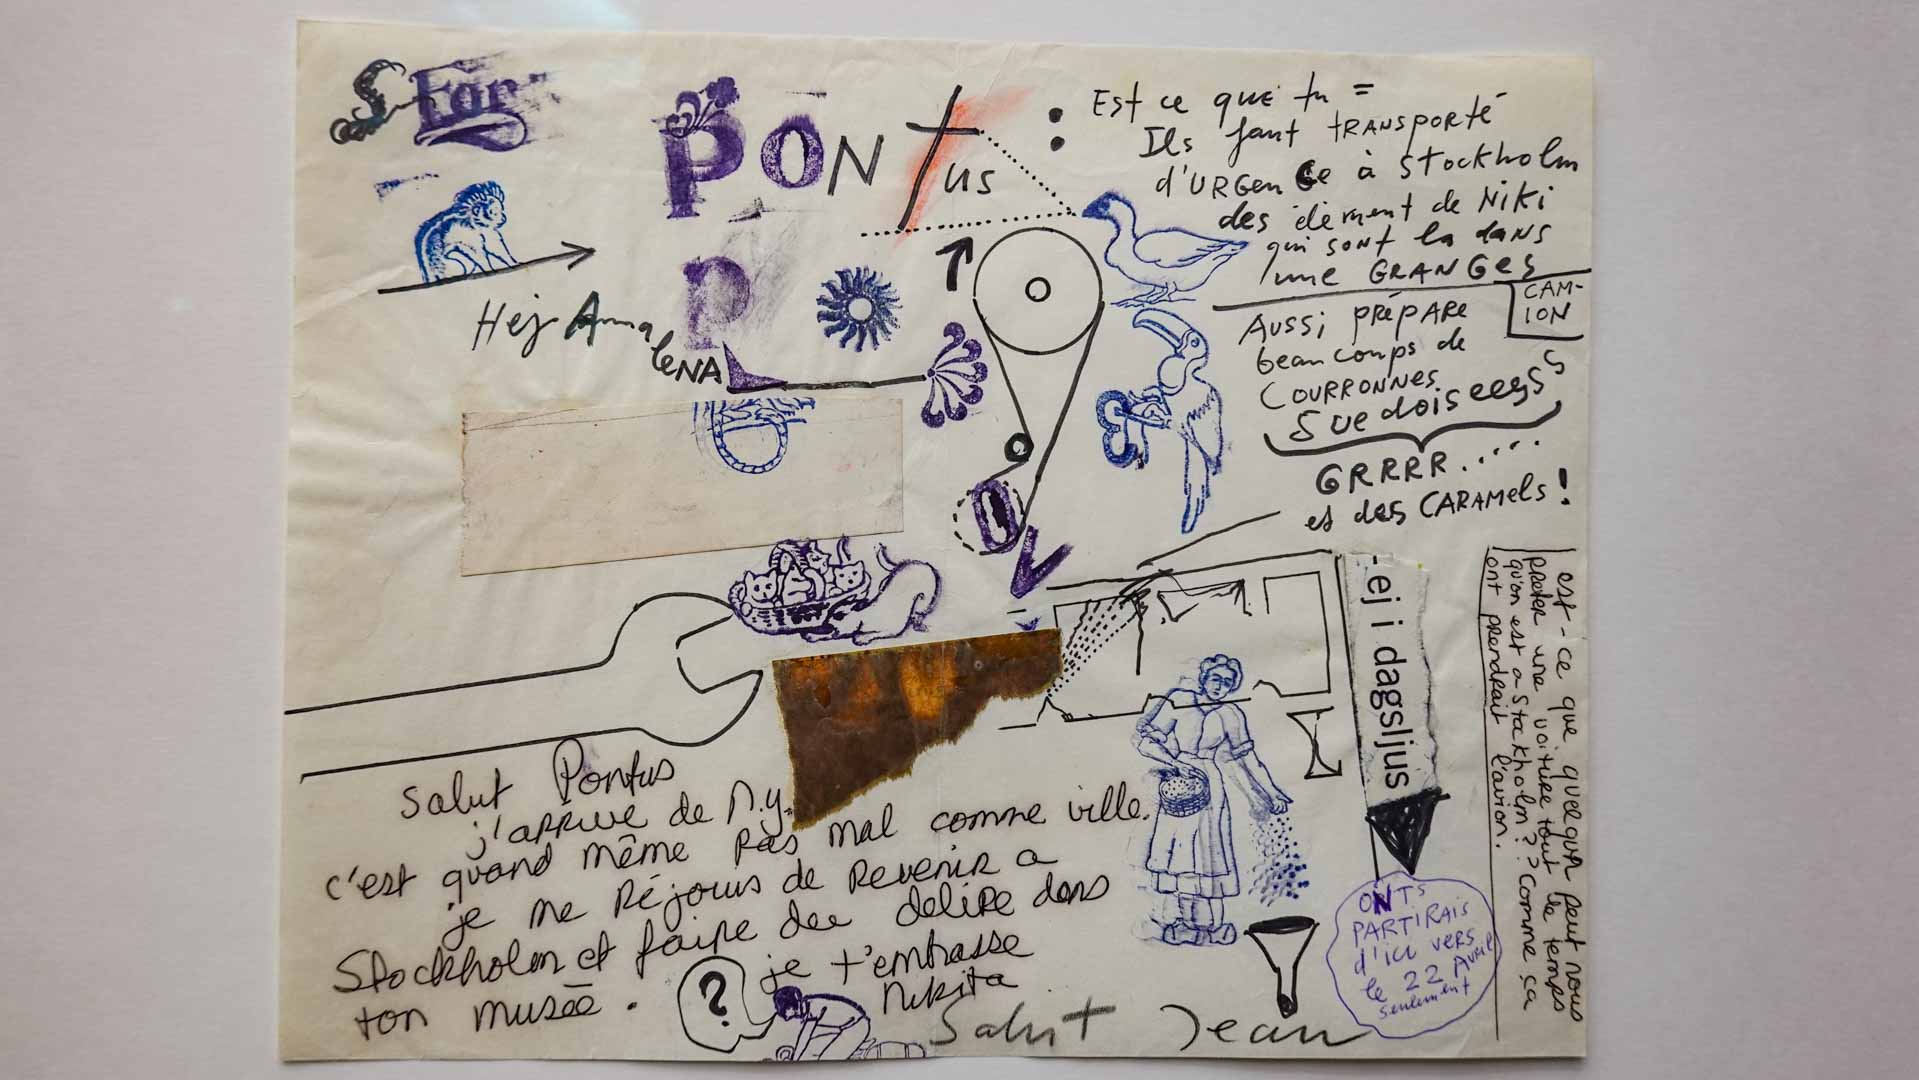 For
PONTus :
Est ce que tu =
Ils faut TRANSPORTÉ
d'URGenCe à Stockholm
des élément de Niki
qui sont la dans
une GRANGES
CAM-
ION
Aussi prépare
beaucoups de
COURRONNES
Suedoiseess
GRRRR.....
et des CARAMels !
P
Hej Anna
leNA
O
V
-ej i dagsljus
est-ce que quelqun peut nous
preter une voiture tout le temps
qu'on est a Stockholm?? comme ça
ont prendrait l'avion.
ONTS
PARTIRAIS
d'ici vers
le 22 Avril
seulement
Salut Pontus
j'arrive de N.Y.
c'est quand même pas mal comme ville.
je me réjouis de revenir a
Stockholm et faire des delire dans
ton musée.
je t'embrasse
Nikita
?
Salut Jean